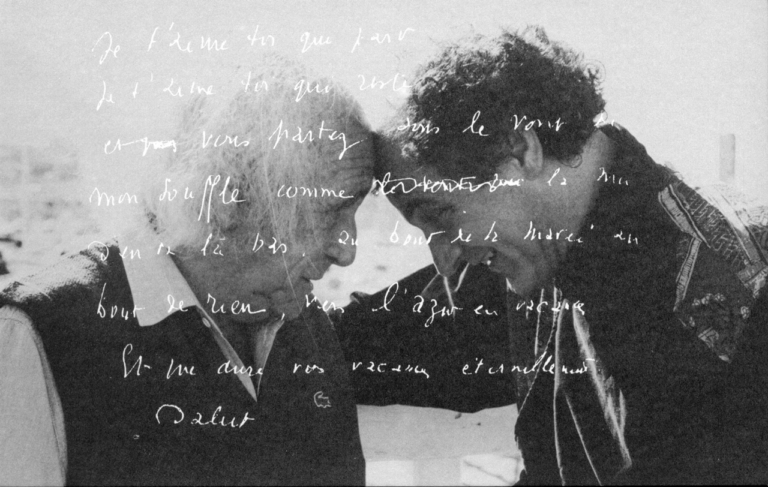 Je t'aime toi que pars
Je t'aime toi qui reste
et vous partez sous le vent
mon souffle comme la
d'en là bas. au bout de la marée au
bout de rien, vers l'azur en vacances
Et que dure vos vacances éternellement.
Salut